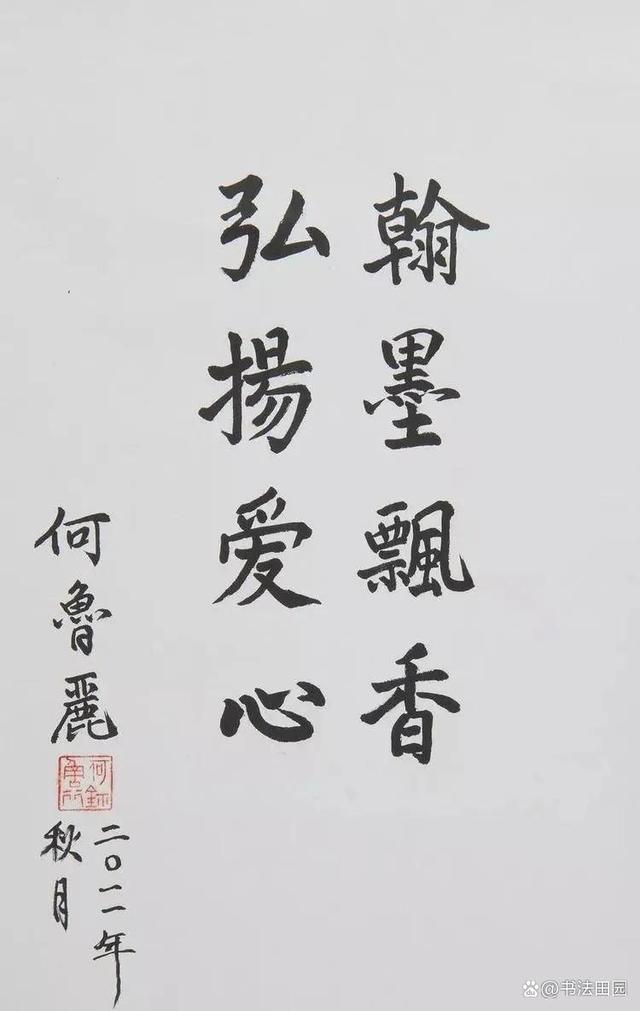 翰墨飄香
弘揚爱心
何魯麗
二〇一一年
秋月
@书法田园